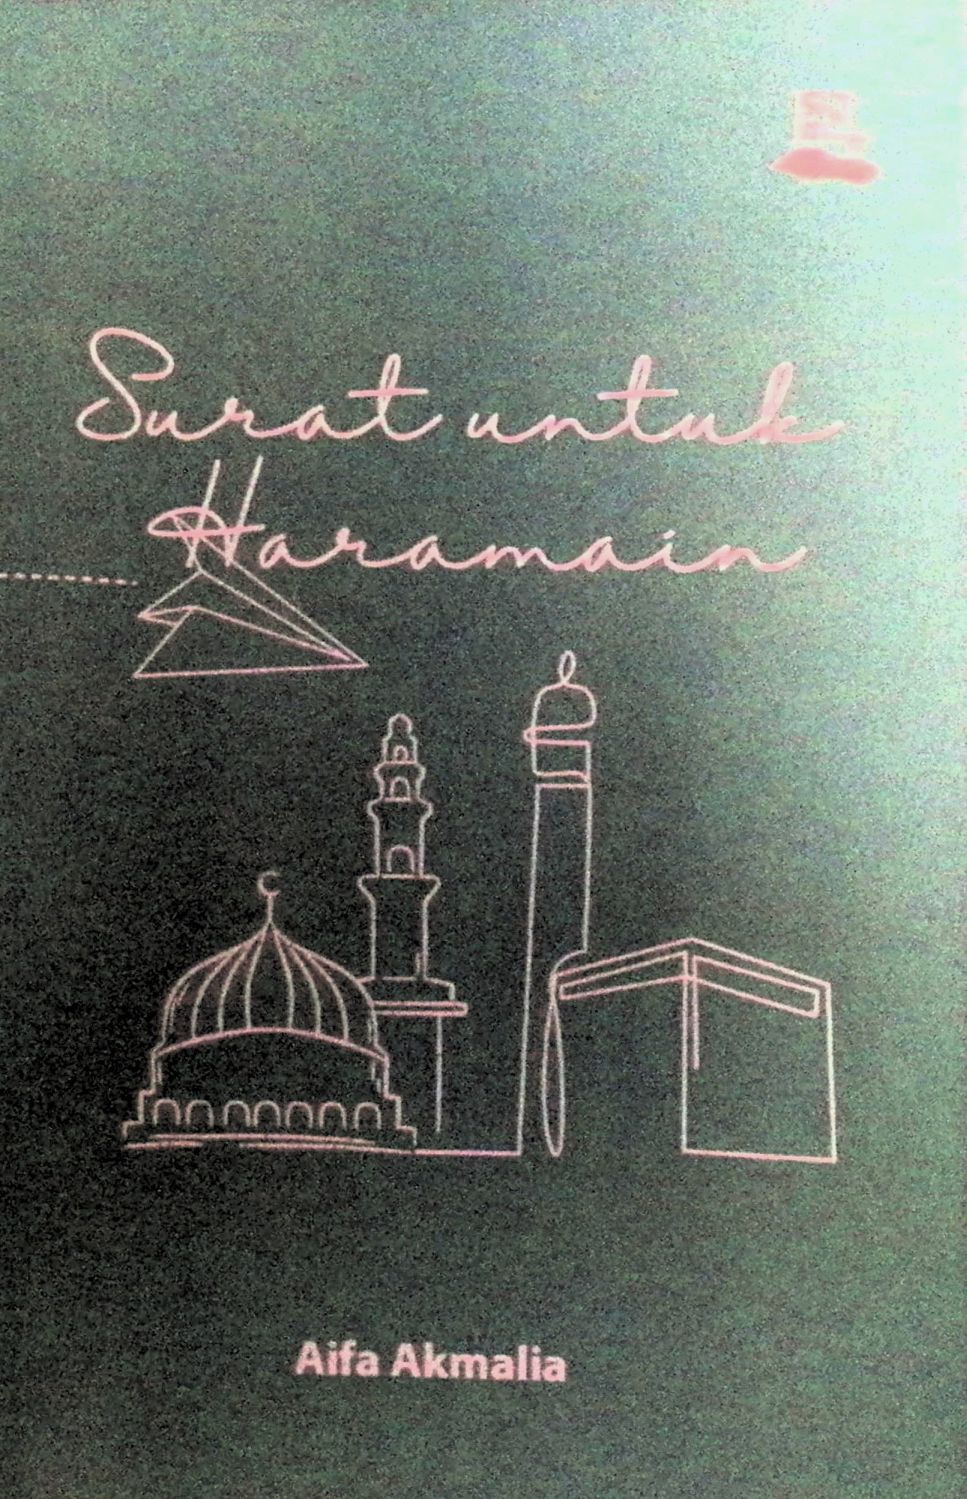 Surat untuk
Haramain
Aifa Akmalia